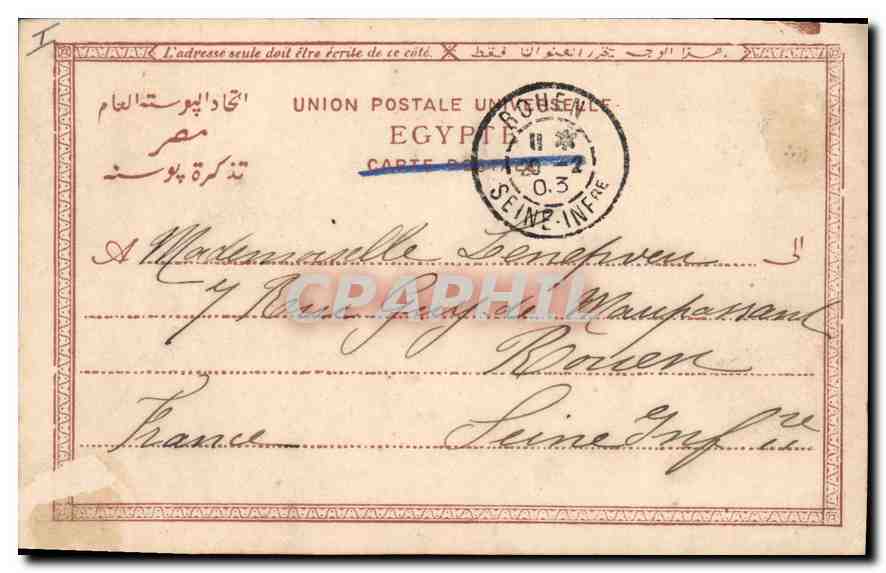 I
L'adresse seule doit être écrite de ce côté. هذا الوجه يحرر العنوان فقط
اتحاد البوسته العام
مصر
تذكرة بوسته
UNION POSTALE UNIVERSELLE
EGYPTE
CARTE
ROUEN
11 *
20 -2
03
SEINE-INFRE
A Mademoiselle الى
7 Rue Guy de Maupassant
Rouen
France Seine Infre
CPAPHIL